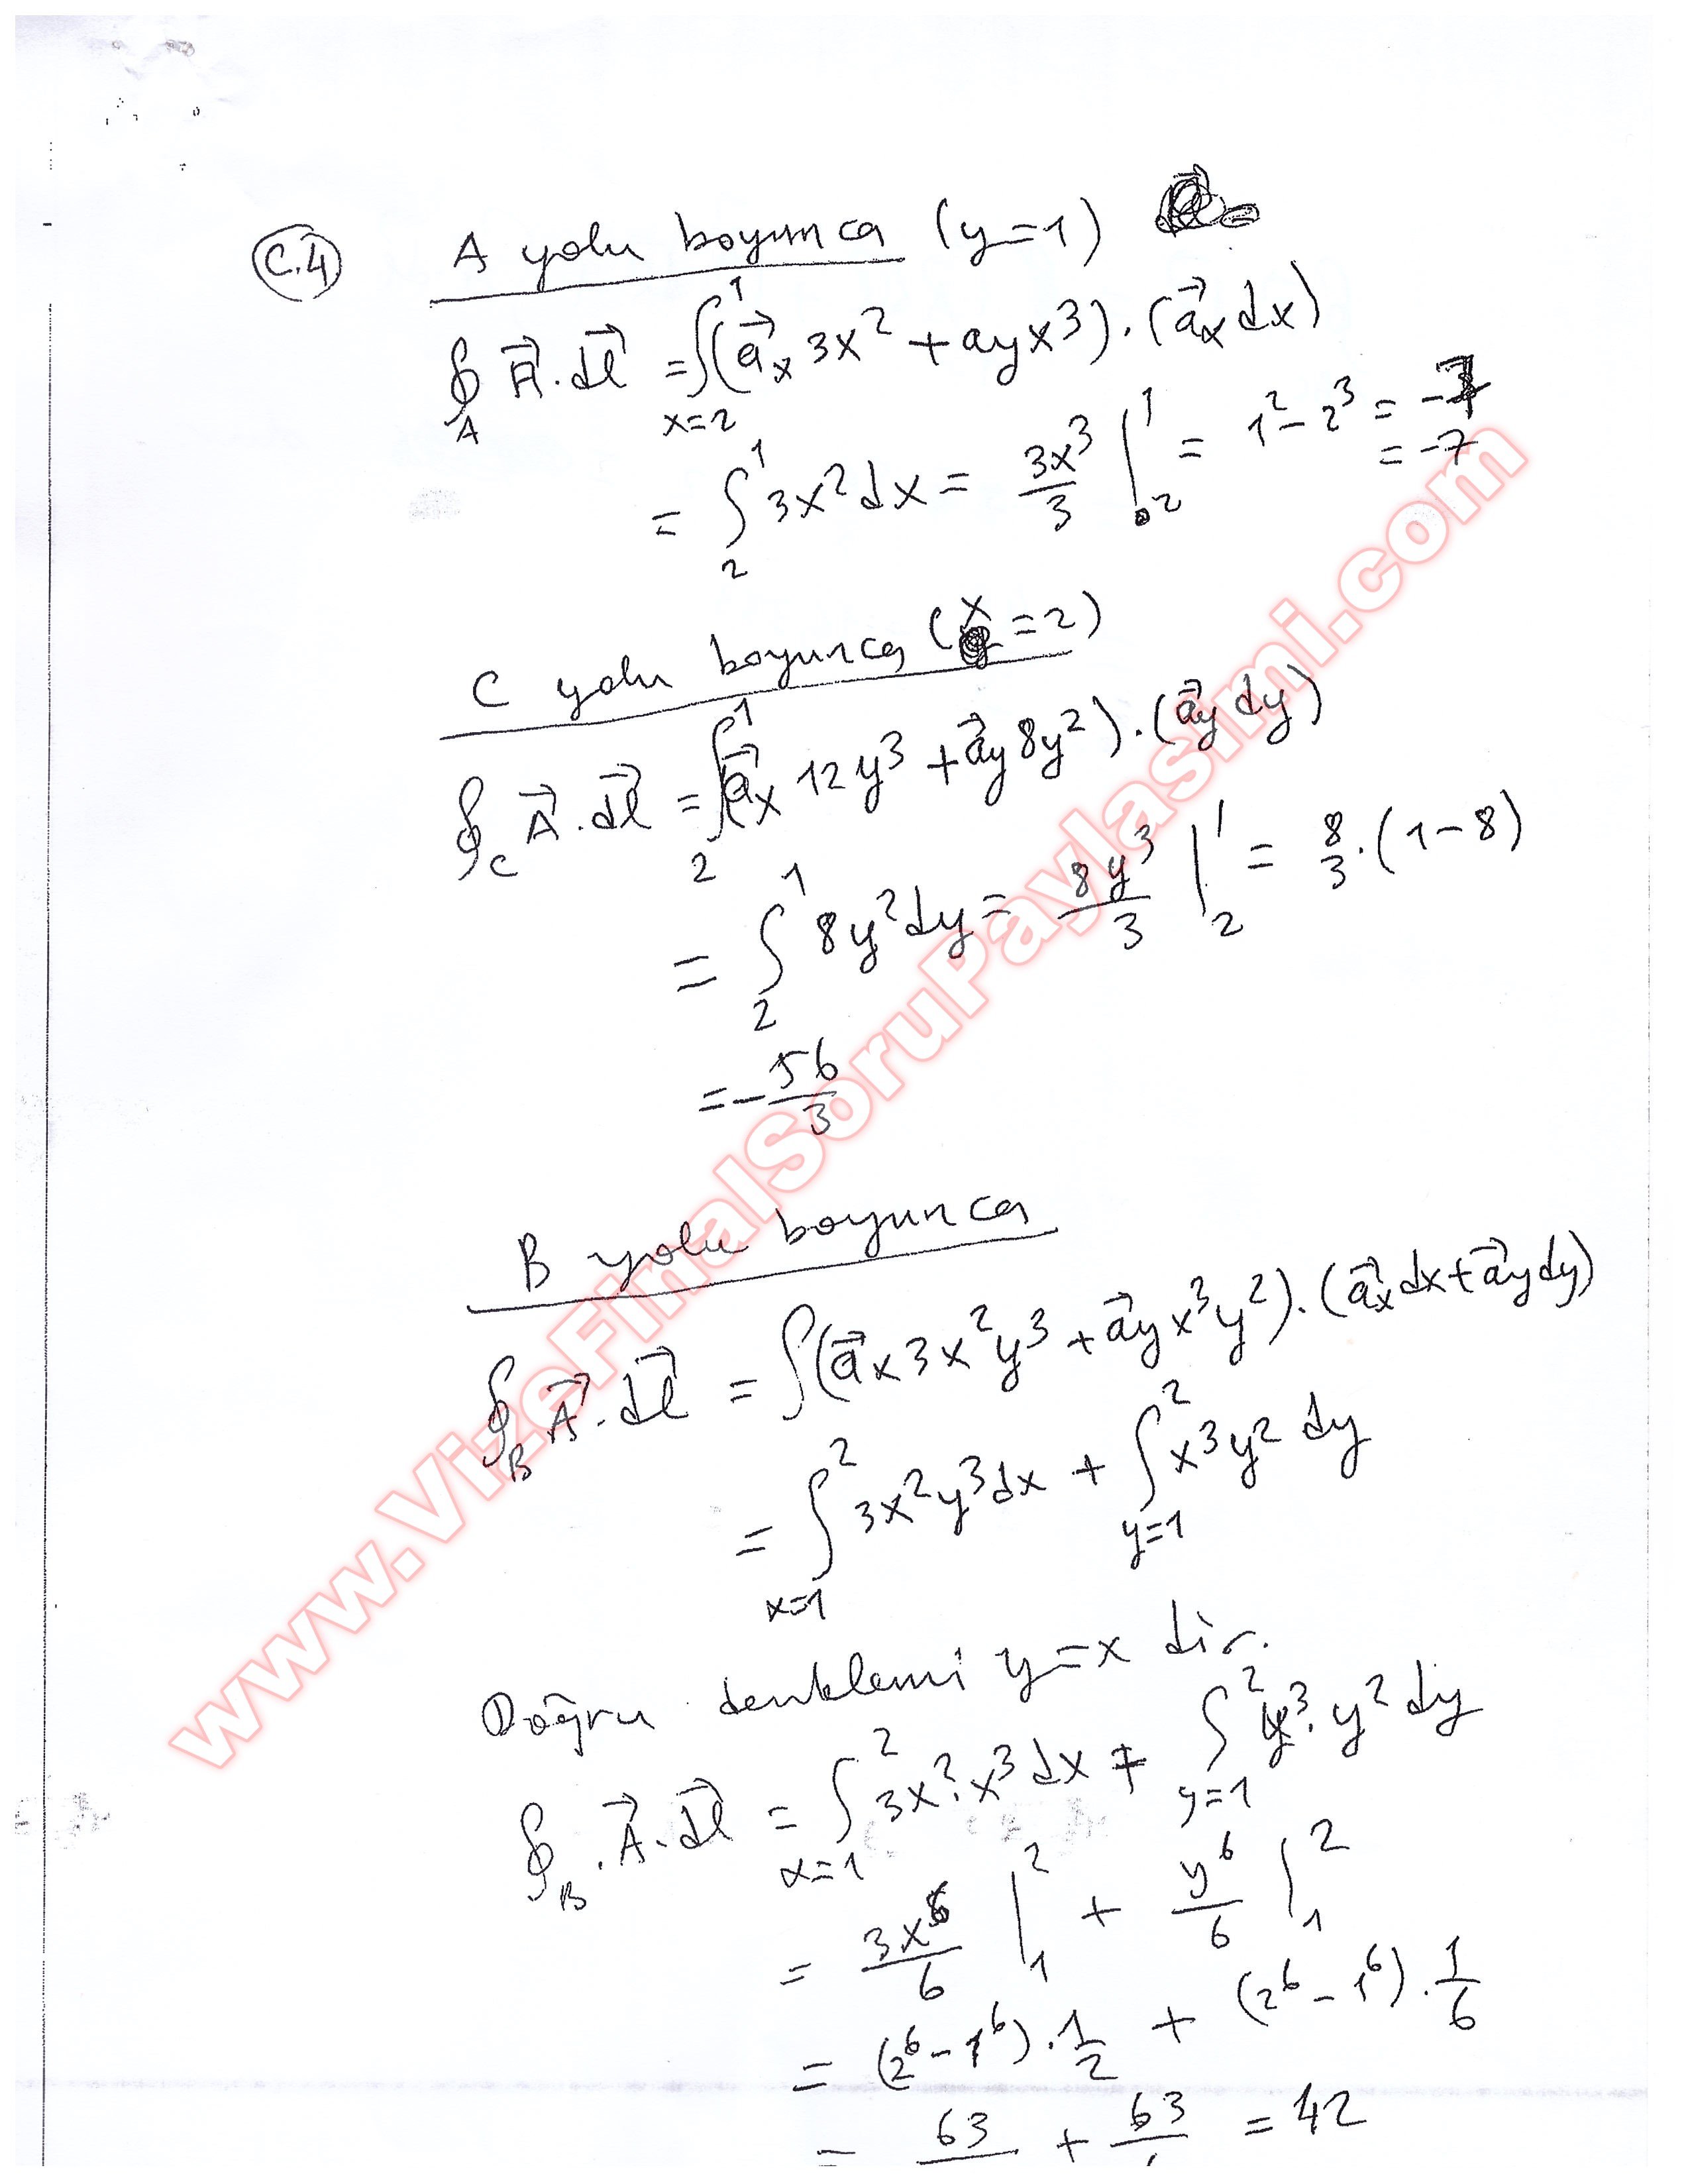 C.4) A yolu boyunca (y=1)
∮_A A⃗·dl⃗ = ∫_{x=2}^{1} (a⃗x 3x² + ay x³)·(a⃗x dx)
= ∫_2^1 3x² dx = 3x³/3 |_2^1 = 1² - 2³ = -7
= -7
C yolu boyunca (x=2)
∮_C A⃗·dl⃗ = ∫_2^1 (a⃗x 12y³ + a⃗y 8y²)·(a⃗y dy)
= ∫_2^1 8y² dy = 8y³/3 |_2^1 = 8/3·(1-8)
= -56/3
B yolu boyunca
∮_B A⃗·dl⃗ = ∫(a⃗x 3x²y³ + a⃗y x³y²)·(a⃗x dx + a⃗y dy)
= ∫_{x=1}^2 3x²y³ dx + ∫_{y=1}^2 x³y² dy
Doğru denklemi y=x dir.
∮_B ·A⃗·dl⃗ = ∫_{x=1}^2 3x²·x³ dx + ∫_{y=1}^2 y³·y² dy
= 3x⁶/6 |_1^2 + y⁶/6 |_1^2
= (2⁶-1⁶)·1/2 + (2⁶-1⁶)·1/6
= 63/ + 63/ = 42
www.VizeFinalSoruPaylasimi.com